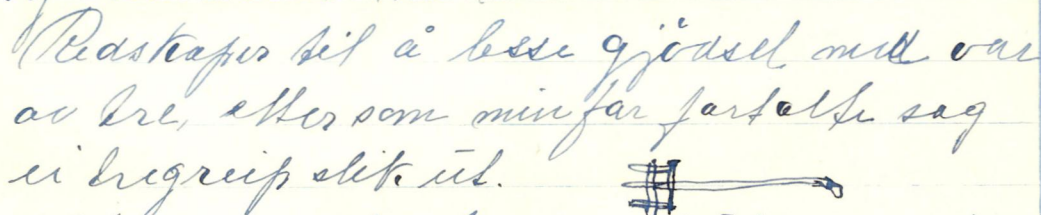 Redskaper til å lesse gjödsel med var
av tre, ettersom min far fortalte sag
ei tregreip slik ut.